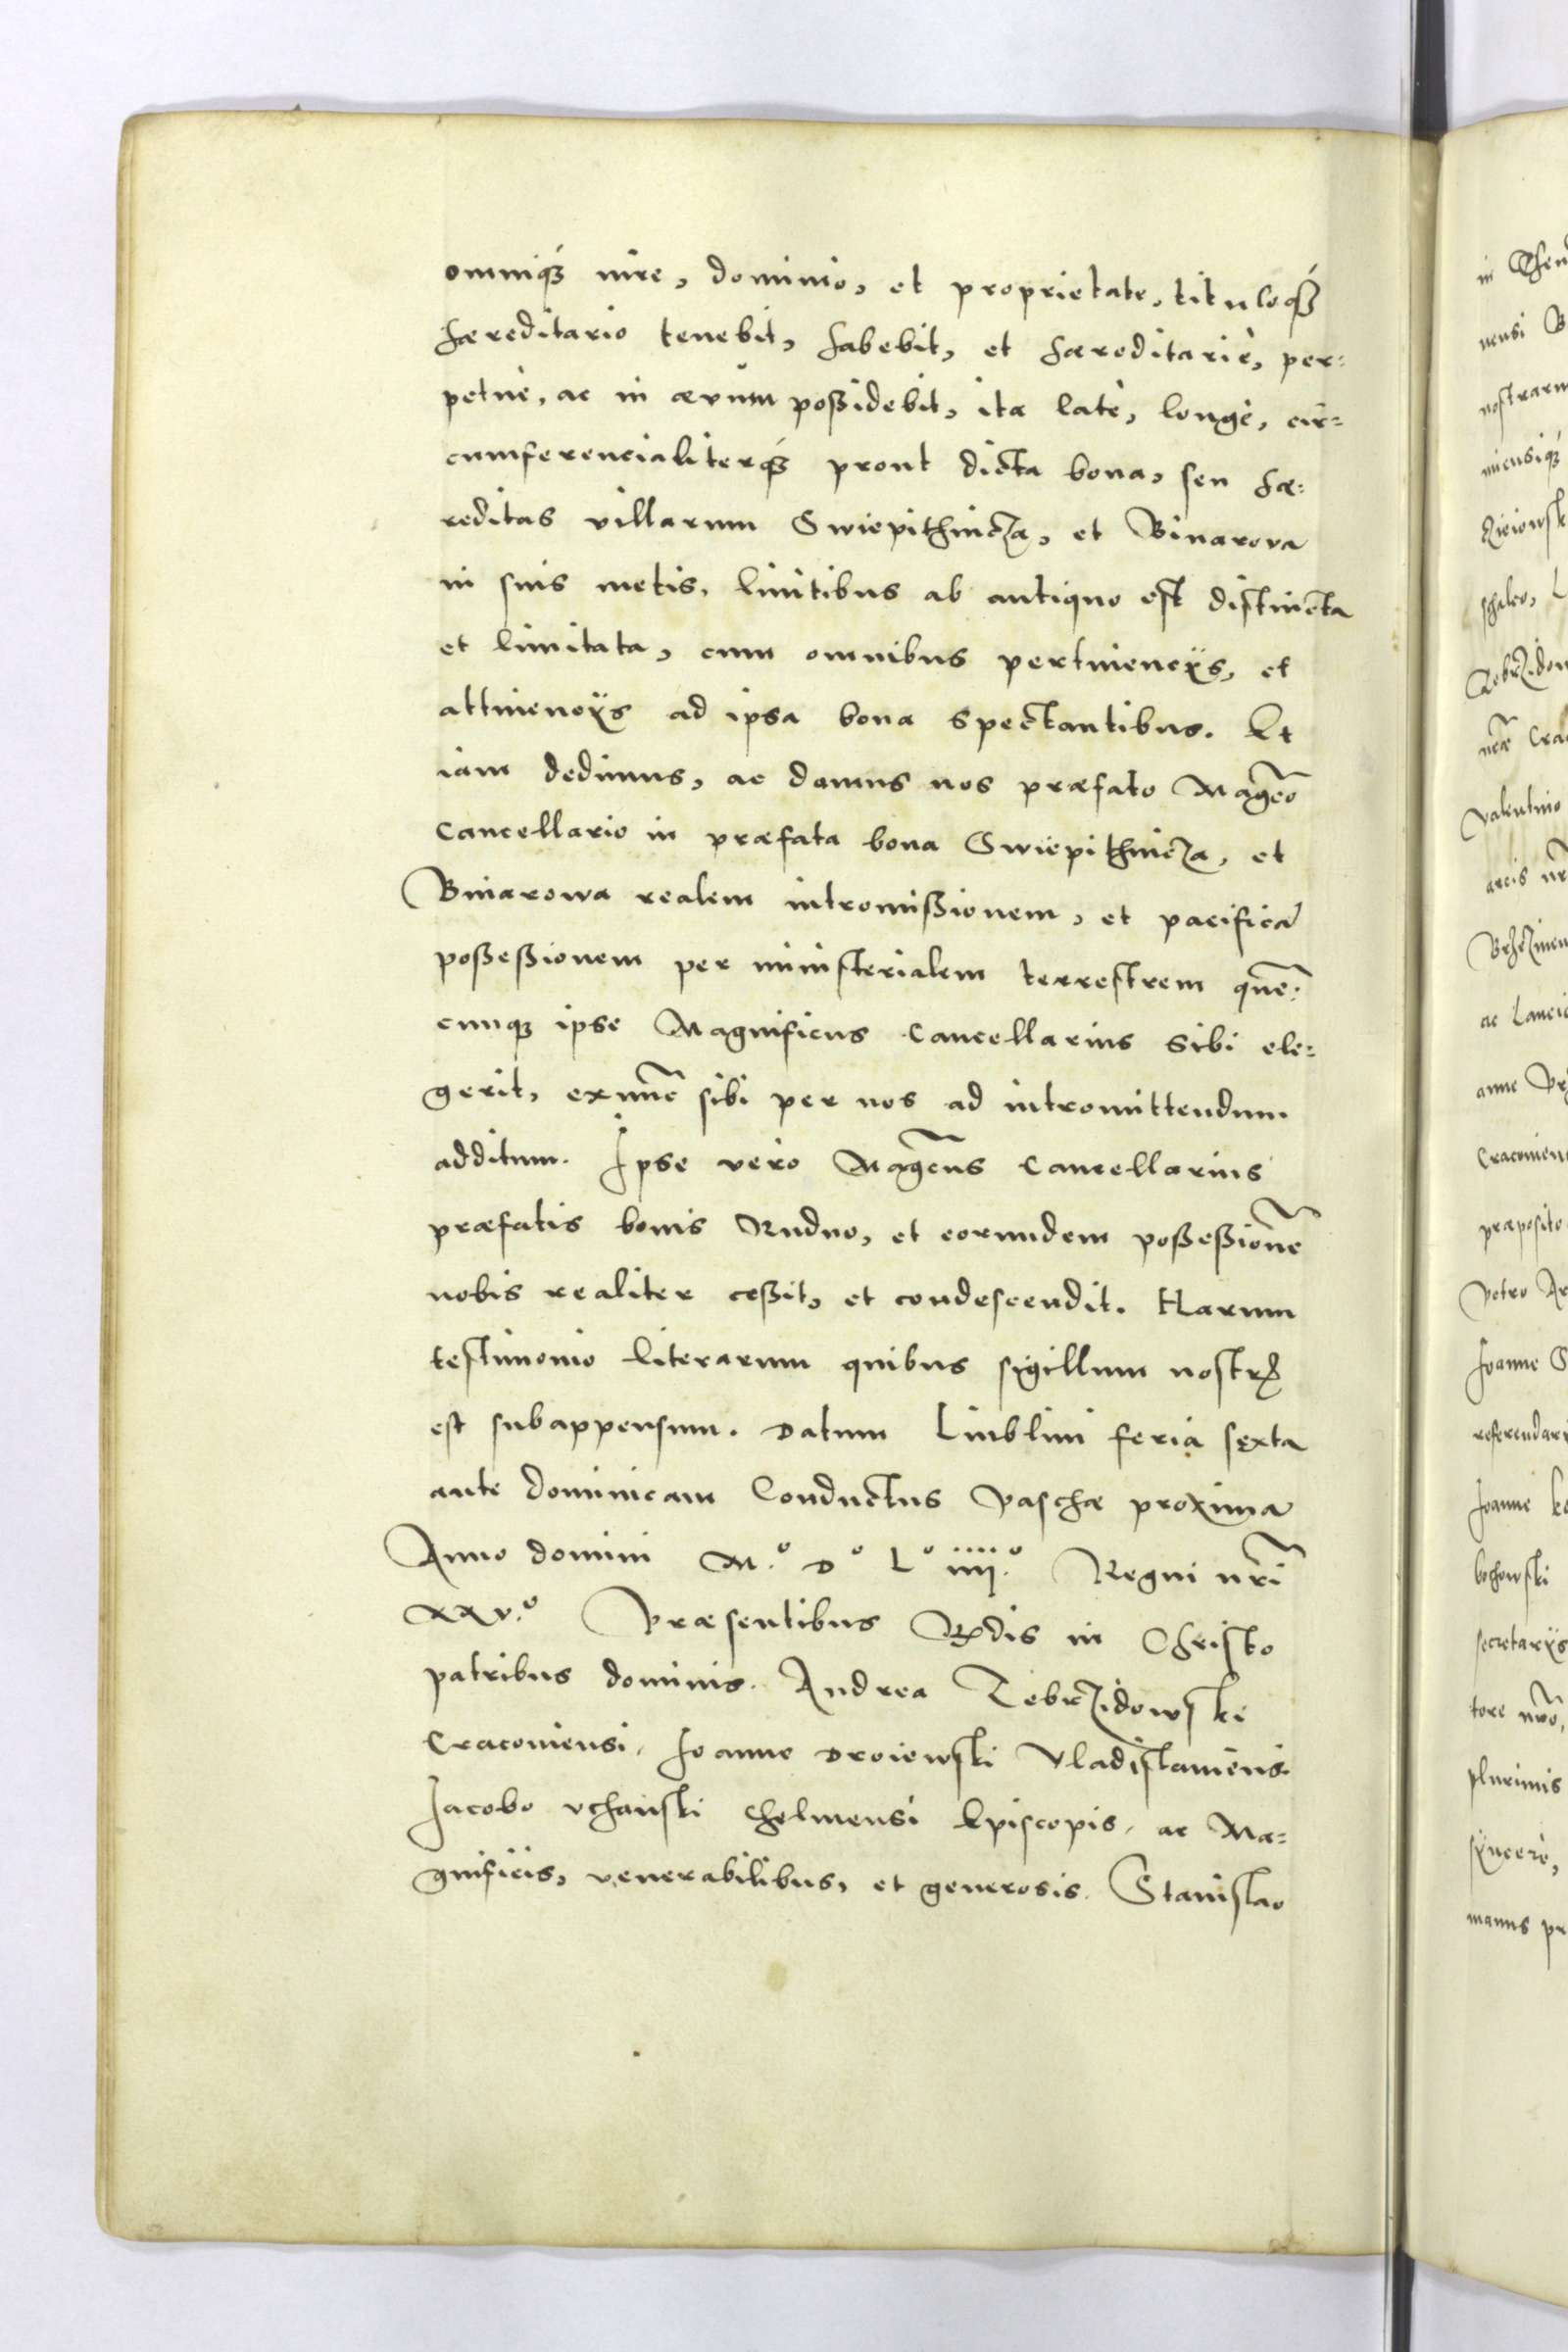 omniq́ꝫ iure, dominio, et proprietate, tituloq́ꝫ
hæreditario tenebit, habebit, et hæreditariè, per=
petuè, ac in æuum poßidebit, ita latè, longè, cir=
cumferencialiterq́ꝫ prout dicta bona, seu hæ=
reditas villarum Swiepithnicza, et Binarova
in suis metis, limitibus ab antiquo est distincta
et limitata, cum omnibus pertinencÿs, et
attinencÿs ad ipsa bona spectantibus. Et
iam dedimus, ac damus nos præfato Mag̃co
Cancellario in præfata bona Swiepithnicza, et
Binarowa realem intromißionem, et pacificã
poßeßionem per ministerialem terrestrem quẽ=
cunqꝫ ipse Magnificus Cancellarius sibi ele=
gerit, exnũc sibi per nos ad intromittendum
additum. Ipse vero Mag̃cus Cancellarius
præfatis bonis Rudno, et eorundem poßeßionẽ
nobis realiter ceßit, et condescendit. Harum
testimonio literarum quibus sigillum nostrũ
est subappensum. Datum Liublini feria sexta
ante dominicam Conductus Paschæ proxima
Anno domini M.º Dº Lº iiij.º Regni nr̃i
xxv.º Præsentibus Rndis in Christo
patribus dominis. Andrea Zebrzidowski
Cracoviensi, Joanne Droiewski Vladislauieñs.
Jacobo Vchański Chelmensi Episcopis, ac Ma=
gnificis, venerabilibus, et generosis. Stanislao
in Then
uensi B
nostraru
micnsiq́ꝫ
schalco, L
Zebrzidow
Valentino
arcis nr
Brzezinen
ac Lancic
anne Prz
Cracouien
præposito
Petro Ar
Joanne S
referendarÿ
Joanne Ko
bochowski
secretarÿs
tore nr̃o,
plurimis
syncerè,
manus pr